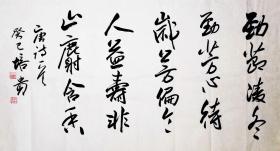 劲節凌冬
劲芳心待
歲芳偏令
人益壽非
止麝含香
唐诗一首
癸巳培